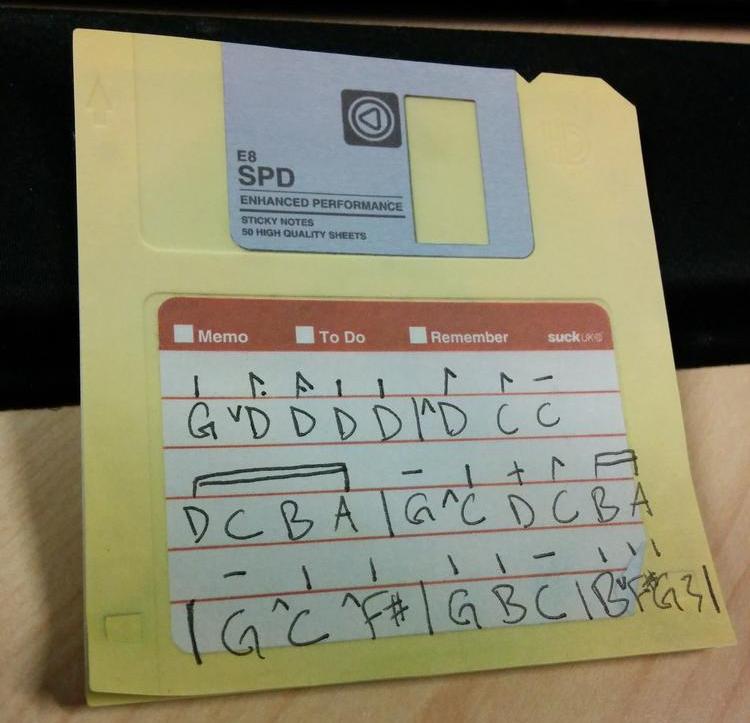 HD
E8
SPD
ENHANCED PERFORMANCE
STICKY NOTES
50 HIGH QUALITY SHEETS
Memo To Do Remember suckUK
G ᵛD D D D | ^D C C
D C B A | G ^C D C B A
| G ^C ^F# | G B C | B ᵛF# G 3 |